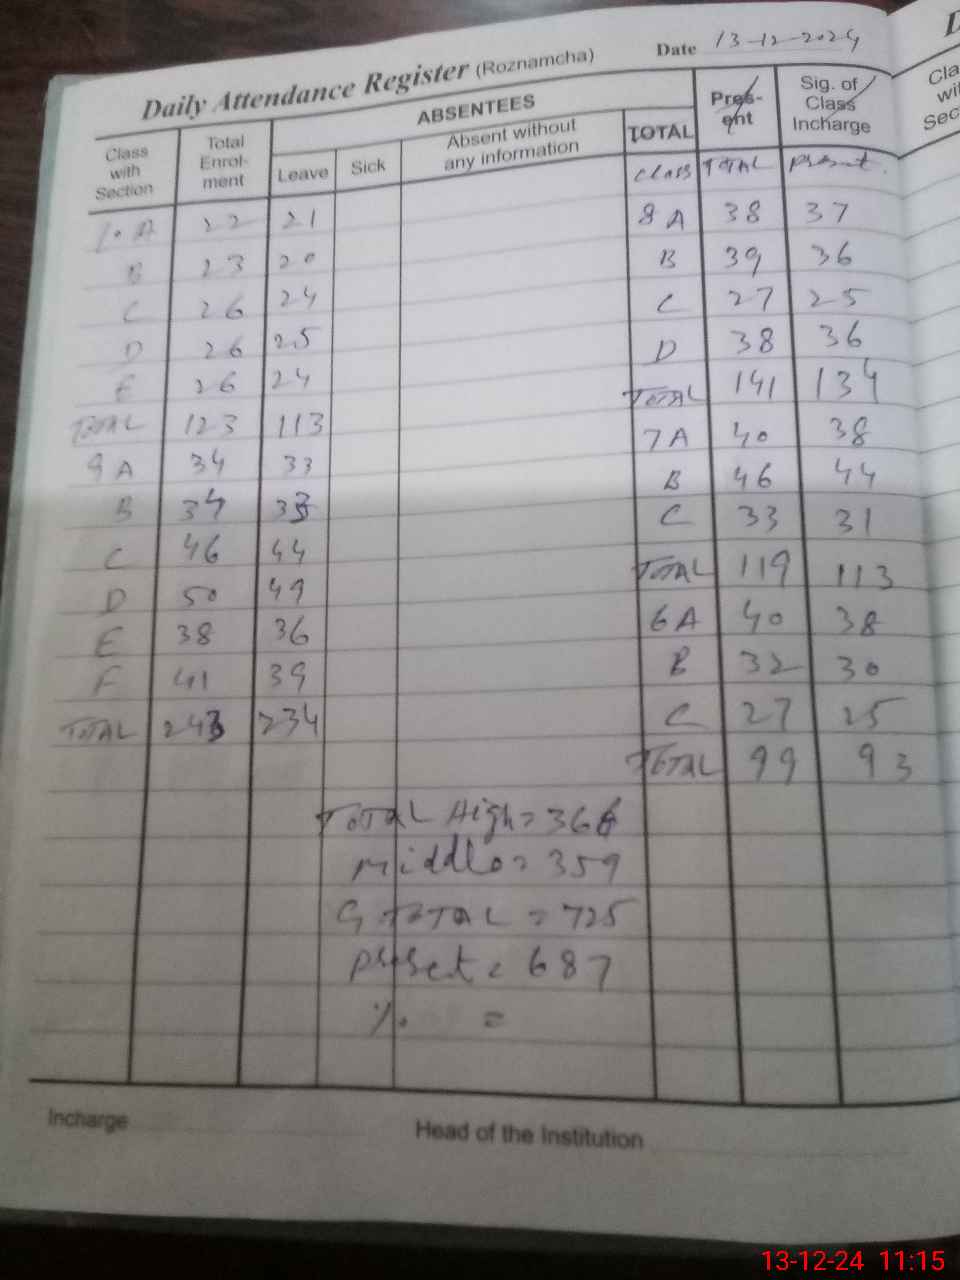 Daily Attendance Register (Roznamcha) Date 13-12-2024
Class with Section Total Enrol-ment ABSENTEES Leave Sick Absent without any information TOTAL Pres-ent Sig. of Class Incharge
Class TOTAL present.
10 A 22 21 8 A 38 37
B 23 20 B 39 36
C 26 24 C 27 25
D 26 25 D 38 36
E 26 24 TOTAL 141 134
TOTAL 123 113 7A 40 38
9 A 34 33 B 46 44
B 34 33 C 33 31
C 46 44 TOTAL 119 113
D 50 49 6A 40 38
E 38 36 B 32 30
F 41 39 C 27 25
TOTAL 243 234 TOTAL 99 93
TOTAL High = 366
middle = 359
G TOTAL = 725
present = 687
% =
Incharge Head of the Institution
D
Cla
wi
Sec
13-12-24 11:15